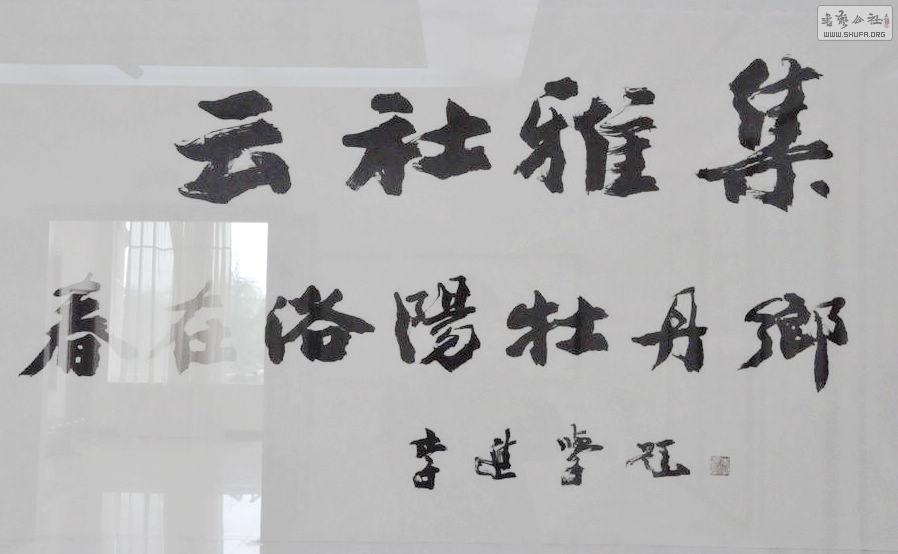 書艺公社
WWW.SHUFA.ORG
云社雅集
春在洛陽牡丹鄉
李進學題